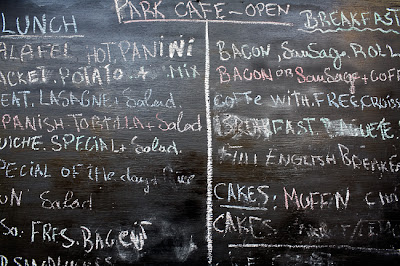 PARK CAFE-OPEN
LUNCH
ALAFEL HOT, PANINI
ACKET, POTATO. + MIX
EAT, LASAGNE, Salad.
PANISH TORTILLA + Salad
UICHE. SPECIAL + Salad.
PECIAL OF the day +
UN Salad
SO: FRES. BAGUET
BREAKFAST
BACON, SauSage, ROLL
BACON OR SauSage + COFF
COFFE WITH. FREE, CROISS
FAST
+ FULL ENGLISH BREAKFA
CAKES: MUFFIN
CAKES: